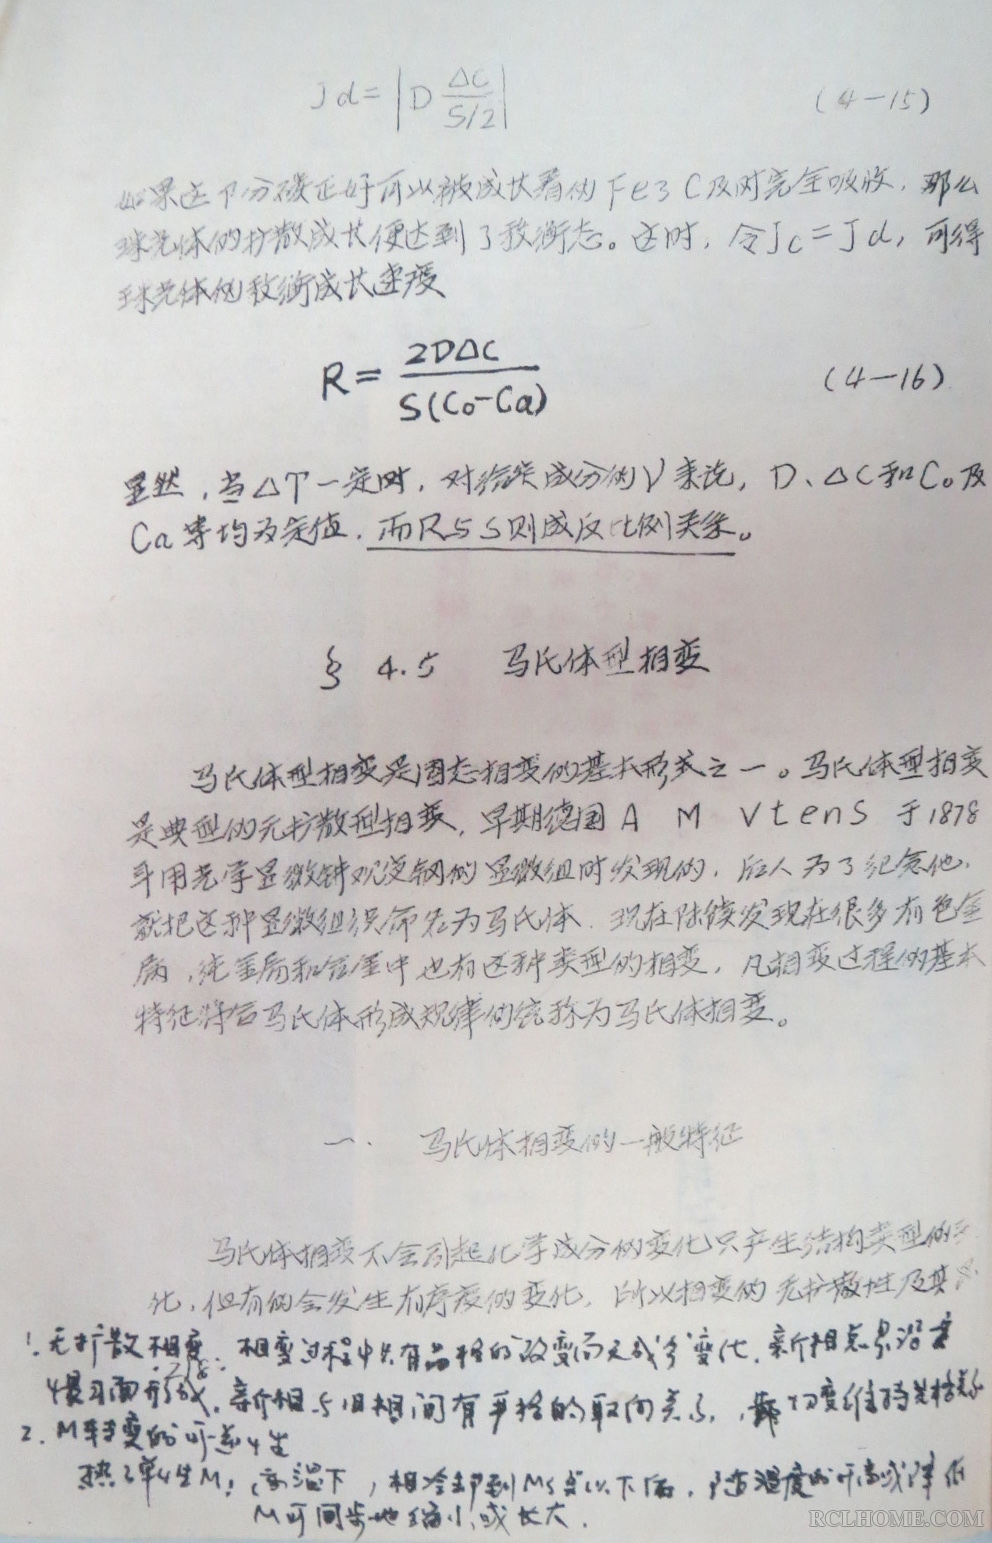 Jd = | D ΔC / S/2 | (4-15)
如果这部分碳正好可以被成长着的Fe3C及时完全吸收，那么
珠光体的扩散成长便达到了致衡态。这时，令Jc=Jd，可得
珠光体的致衡成长速度
R = 2DΔC / S(Co-Ca) (4-16)
显然，当ΔT一定时，对给定成分的γ来说，D、ΔC和Co及
Ca等均为定值，而R与S则成反比例关系。
§ 4.5 马氏体型相变
马氏体型相变是固态相变的基本形式之一。马氏体型相变
是典型的无扩散型相变，早期德国A M Vtens 于1878
年用光学显微镜观没钢的显微组时发现的，后人为了纪念他，
就把这种显微组织命名为马氏体．现在陆续发现在很多有色金
属，纯金属和合金中也有这种类型的相变，凡相变过程的基本
特征符合马氏体形成规律的统称为马氏体相变。
一． 马氏体相变的一般特征
马氏体相变不会引起化学成分的变化只产生结构类型的
化，但有的会发生有序度的变化，所以相变的无扩散性及其
1. 无扩散相变：相变过程中只有晶格的改变而无成分变化．新相总是沿着
惯习面形成，新相与旧相间有严格的取向关系，靠切变维持共格关系
2. M转变的可逆性
热弹性M：高温下，相冷却到Ms点以下后，随温度的升高或降低
M可同步地缩小或长大．
RCLHOME.COM